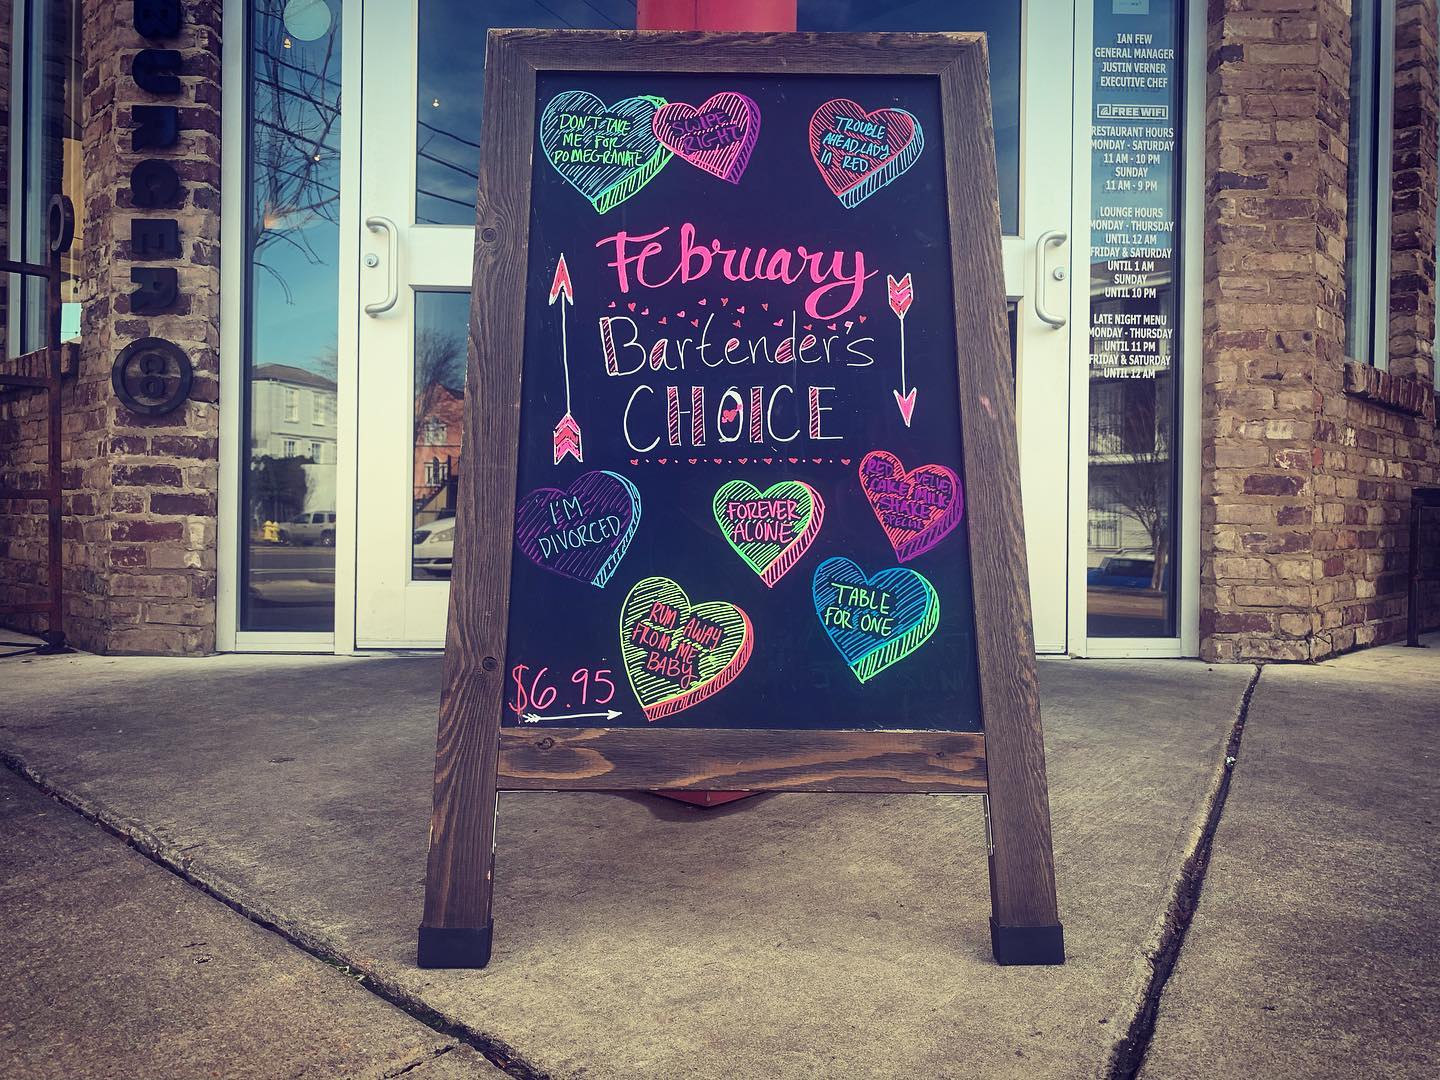 DON'T TAKE
ME FOR
POMEGRANATE
SWIPE
RIGHT
TROUBLE
AHEAD, LADY
IN RED
February
Bartender's
CHOICE
I'M
DIVORCED
FOREVER
ALONE
RED VELVET
CAKE MILK
SHAKE
SPECIAL
RUM AWAY
FROM ME
BABY
TABLE
FOR ONE
$6.95
BURGER
CO
IAN FEW
GENERAL MANAGER
JUSTIN VERNER
EXECUTIVE CHEF
FREE WIFI
RESTAURANT HOURS
MONDAY - SATURDAY
11 AM - 10 PM
SUNDAY
11 AM - 9 PM
LOUNGE HOURS
MONDAY - THURSDAY
UNTIL 12 AM
FRIDAY & SATURDAY
UNTIL 1 AM
SUNDAY
UNTIL 10 PM
LATE NIGHT MENU
MONDAY - THURSDAY
UNTIL 11 PM
FRIDAY & SATURDAY
UNTIL 12 AM